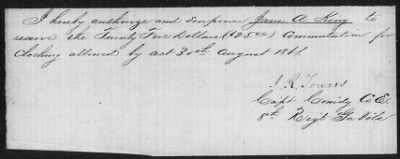 I hereby authorize and empower James A King to
receive the Twenty Five Dollars ($25.00) Commutation for
Clothing allowed by act 30th August 1861.
J. R. Towers
Capt Comdg Co E.
8th Regt Ga Vols